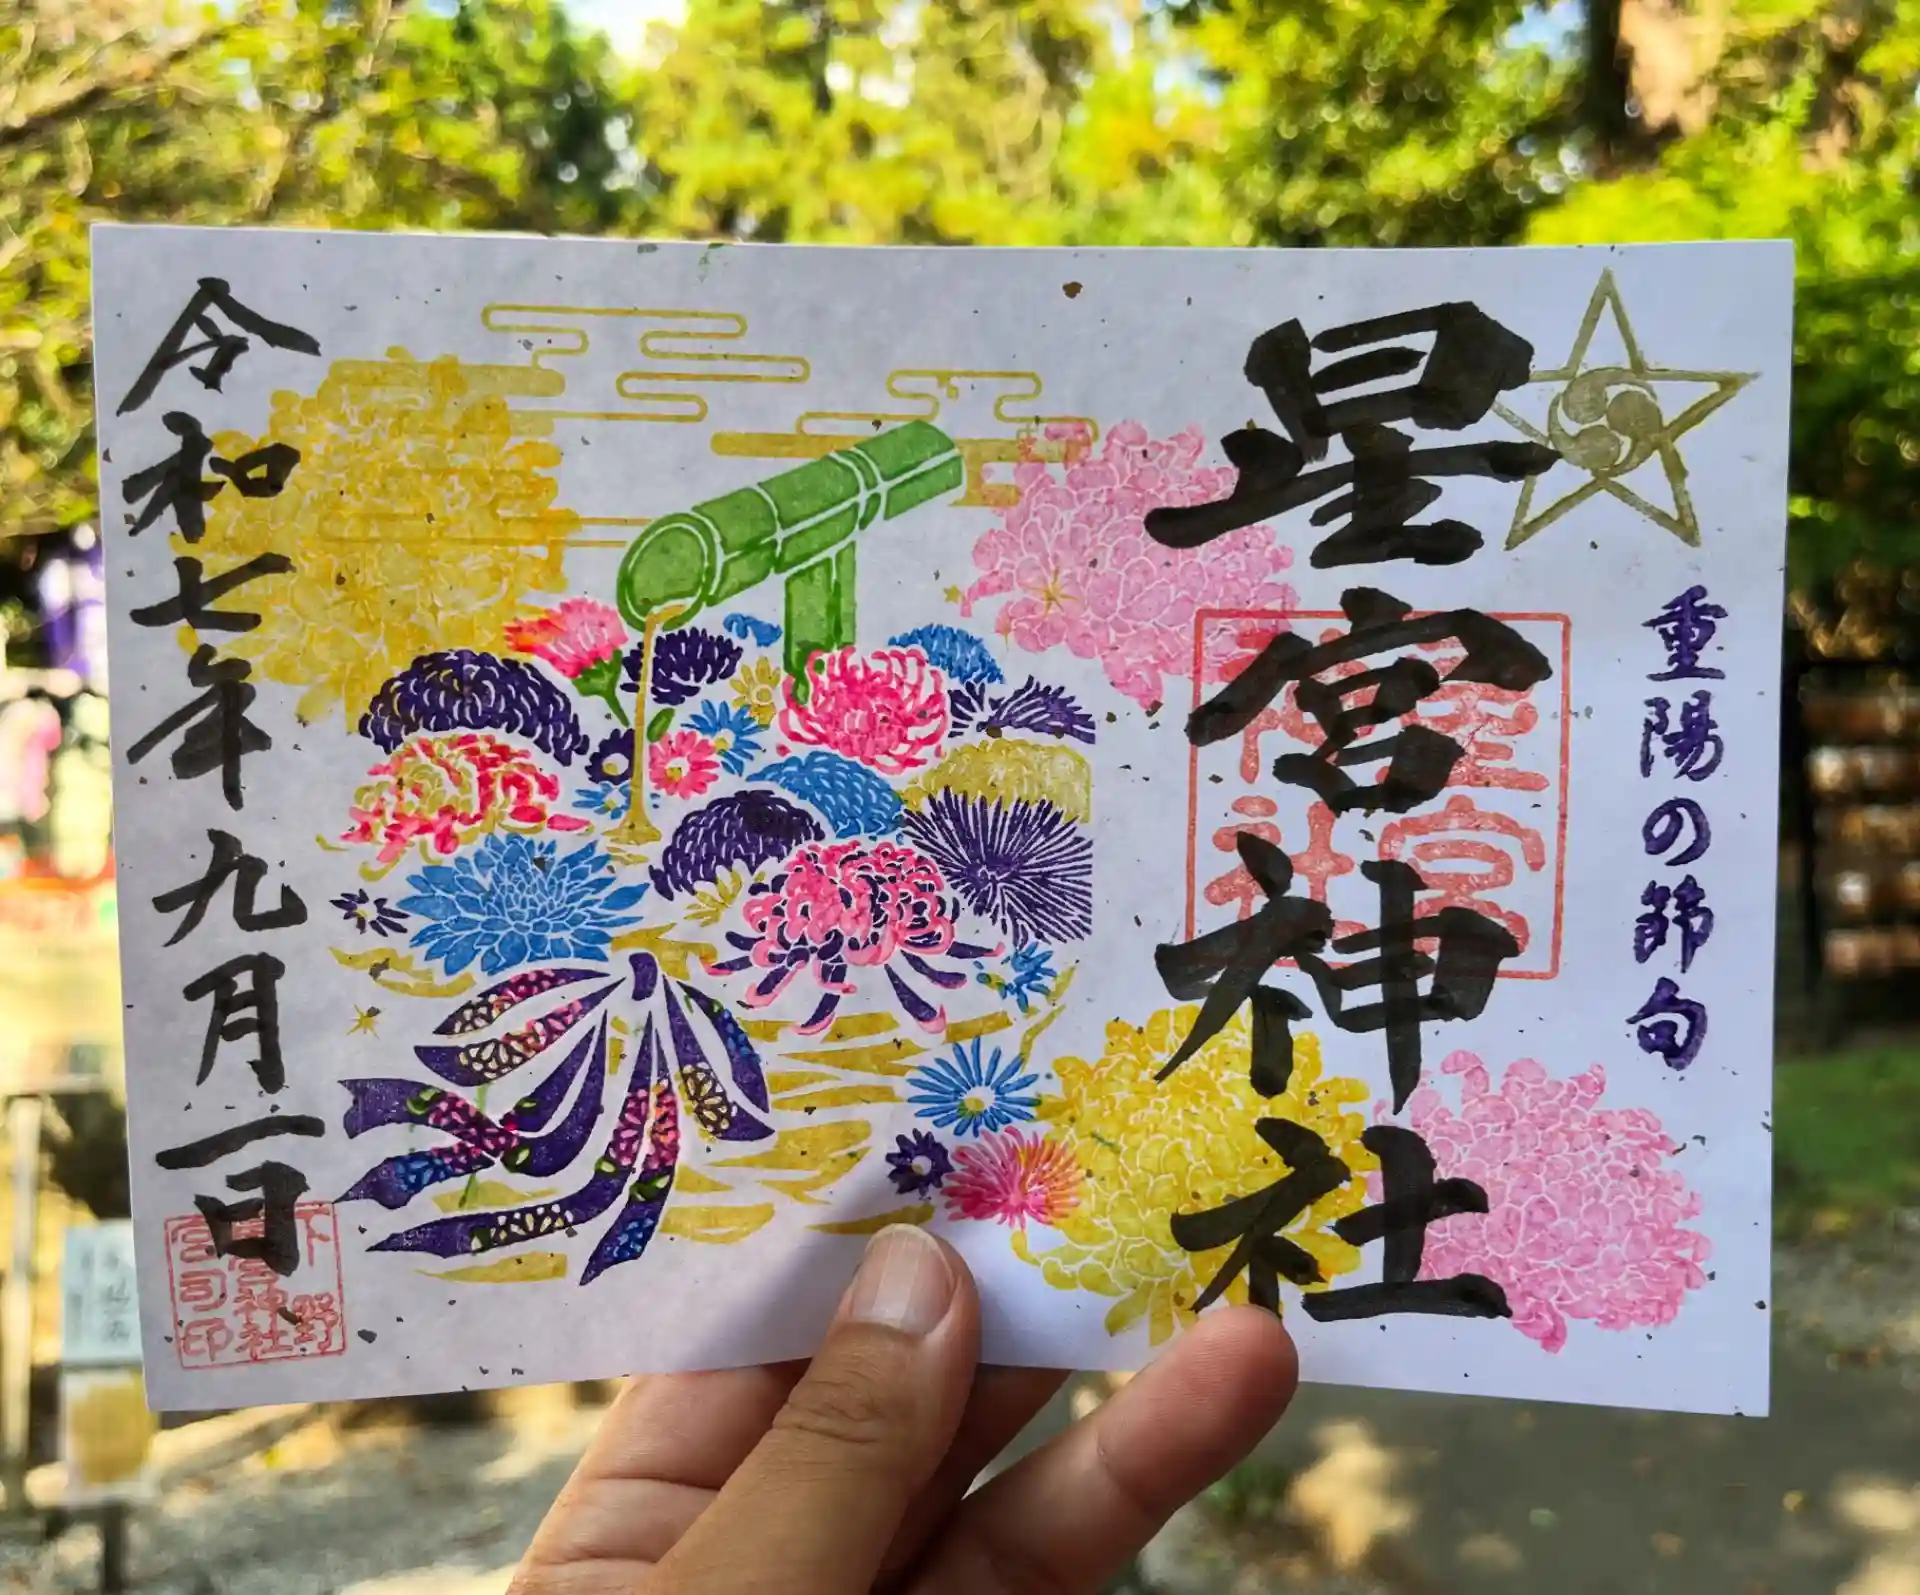 重陽の節句
星宮神社
星宮神社
令和七年九月一日
下野
星宮神社
宮司印